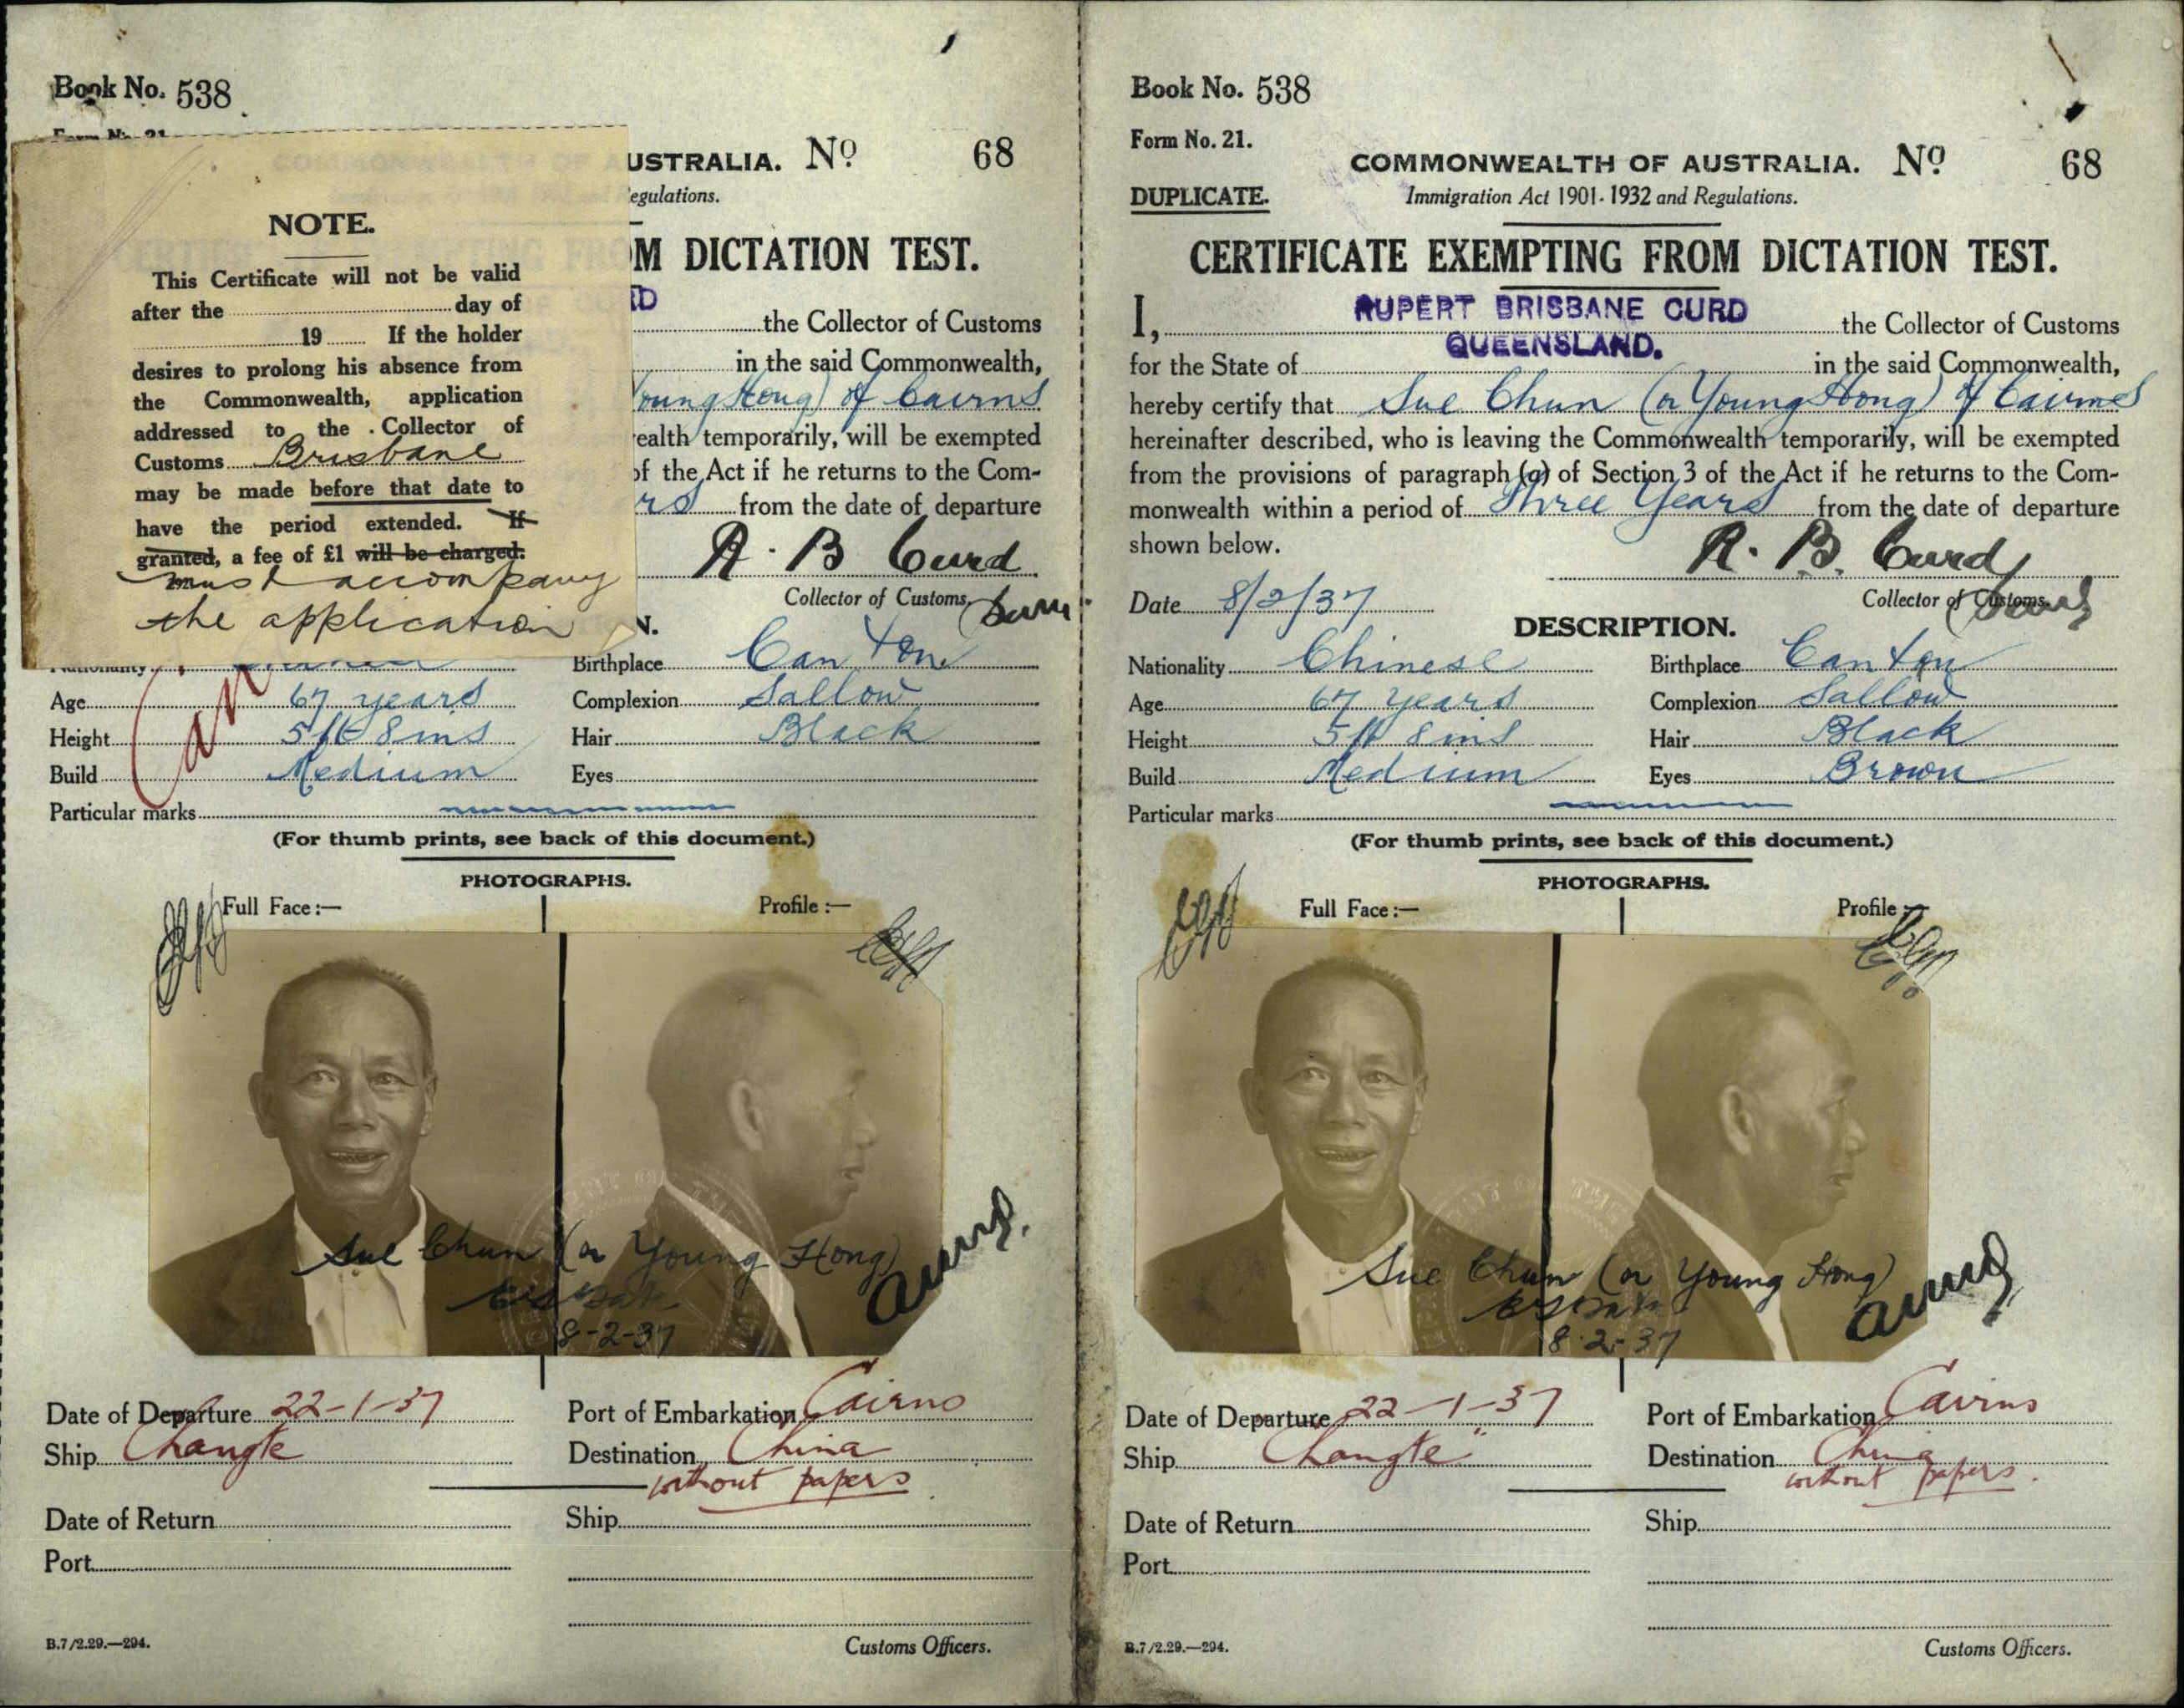 Book No. 538
USTRALIA. No 68
egulations.
M DICTATION TEST.
RD
the Collector of Customs
in the said Commonwealth,
Young Hong) of Cairns
ealth temporarily, will be exempted
of the Act if he returns to the Com-
rs from the date of departure
R. B Curd
Collector of Customs,
N.
NOTE.
This Certificate will not be valid
after the day of
19 If the holder
desires to prolong his absence from
the Commonwealth, application
addressed to the Collector of
Customs Brisbane
may be made before that date to
have the period extended. If
granted, a fee of £1 will be charged.
must accompany
the application
Nationality Birthplace Canton
Age 67 years Complexion Sallow
Height 5 ft 8 ins Hair Black
Build Medium Eyes
Particular marks
(For thumb prints, see back of this document.)
PHOTOGRAPHS.
Full Face:— Profile:—
Sue Chun (or Young Hong)
8-2-37
Date of Departure 22-1-37 Port of Embarkation Cairns
Ship Changte Destination China
without papers
Date of Return Ship
Port
B.7/2.29.—294. Customs Officers.
Book No. 538
Form No. 21.
COMMONWEALTH OF AUSTRALIA. No 68
DUPLICATE. Immigration Act 1901-1932 and Regulations.
CERTIFICATE EXEMPTING FROM DICTATION TEST.
I, RUPERT BRISBANE CURD the Collector of Customs
for the State of QUEENSLAND. in the said Commonwealth,
hereby certify that Sue Chun (or Young Hong) of Cairns
hereinafter described, who is leaving the Commonwealth temporarily, will be exempted
from the provisions of paragraph (a) of Section 3 of the Act if he returns to the Com-
monwealth within a period of Three Years from the date of departure
shown below.
R. B. Curd
Date 8/2/37 Collector of Customs.
DESCRIPTION.
Nationality Chinese Birthplace Canton
Age 67 years Complexion Sallow
Height 5 ft 8 ins Hair Black
Build Medium Eyes Brown
Particular marks
(For thumb prints, see back of this document.)
PHOTOGRAPHS.
Full Face:— Profile:—
Sue Chun (or Young Hong)
8-2-37
Date of Departure 22-1-37 Port of Embarkation Cairns
Ship Changte" Destination China
without papers.
Date of Return Ship
Port
B.7/2.29.—294. Customs Officers.